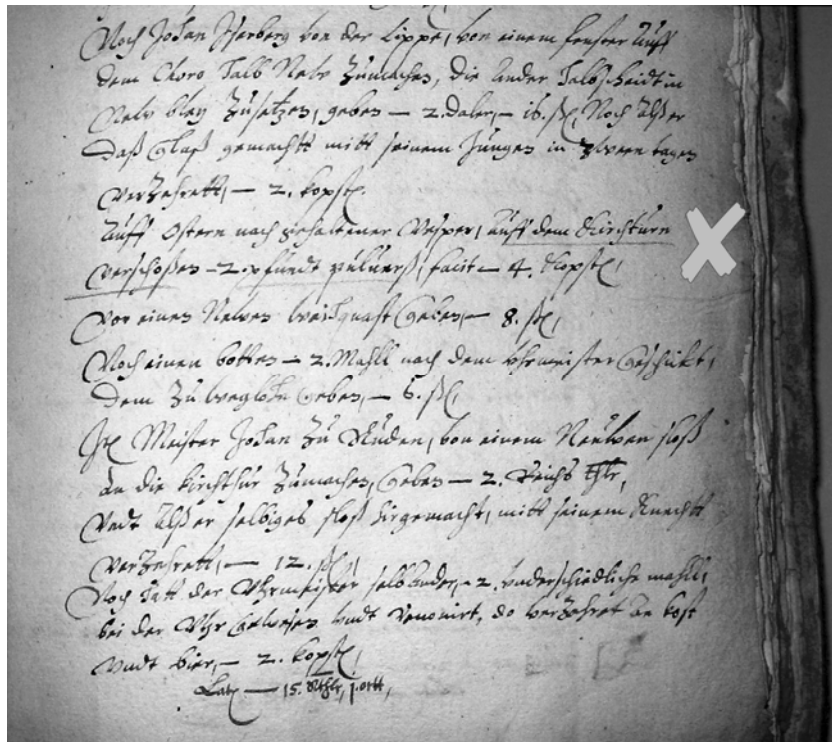 Noch Johan Isenberg von der Lippe, von einem fenster Auff
dem Choro halb New Zumachen, die ander halbscheidt in
New bley Zusetzen, geben — 2. daler, — 16. ßl, Noch Alß er
daß Glaß gemachtt mitt seinem Jungen in zween tagen
verzehrett, — 2. kopst.
Auff Ostern nach gehaltener Vesper, auff dem Kirchturn
verschoßen — 2. pfundt puluerß, facit — 4. Kopst,
Vor einen Newen weihquast Geben, — 8. ßl,
Noch einen botten — 2. Mahll nach dem Uhrmeister Geschickt,
dem Zu weglohn Geben, — 6. ßl,
It. Meister Johan Zu Rüden, von einem Neuwen sloß
an die Kirchthür Zumachen, Geben — 2. Reichs thlr,
Undt Alß er selbiges sloß hirgemacht, mitt seinem Knechtt
verzehrett, — 12. ßl,
Noch hatt der Uhrmeister selbander, — 2. underschiedliche mahll,
bei der Uhr Gewesen undt renouirt, do verzehret an kost
undt bier, — 2. kopst,
Lat. — 15. Rthlr, 1. ortt,